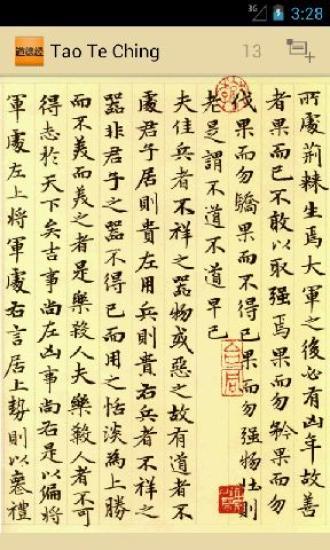 3G 3:28
道德經 Tao Te Ching 13
所處荊棘生焉大軍之後必有凶年故善
者果而已不敢以取强焉果而勿矜果而勿
伐果而勿驕果而不得已果而勿强物壯則
老是謂不道不道早已
夫佳兵者不祥之物或惡之故有道者不
處君子居則貴左用兵則貴右兵者不祥之
器非君子之器不得已而用之恬淡為上勝
而不美而美之者是樂殺人夫樂殺人者不可
得志於天下矣吉事尚左凶事尚右是以偏將
軍處左上將軍處右言居上勢則以喪禮